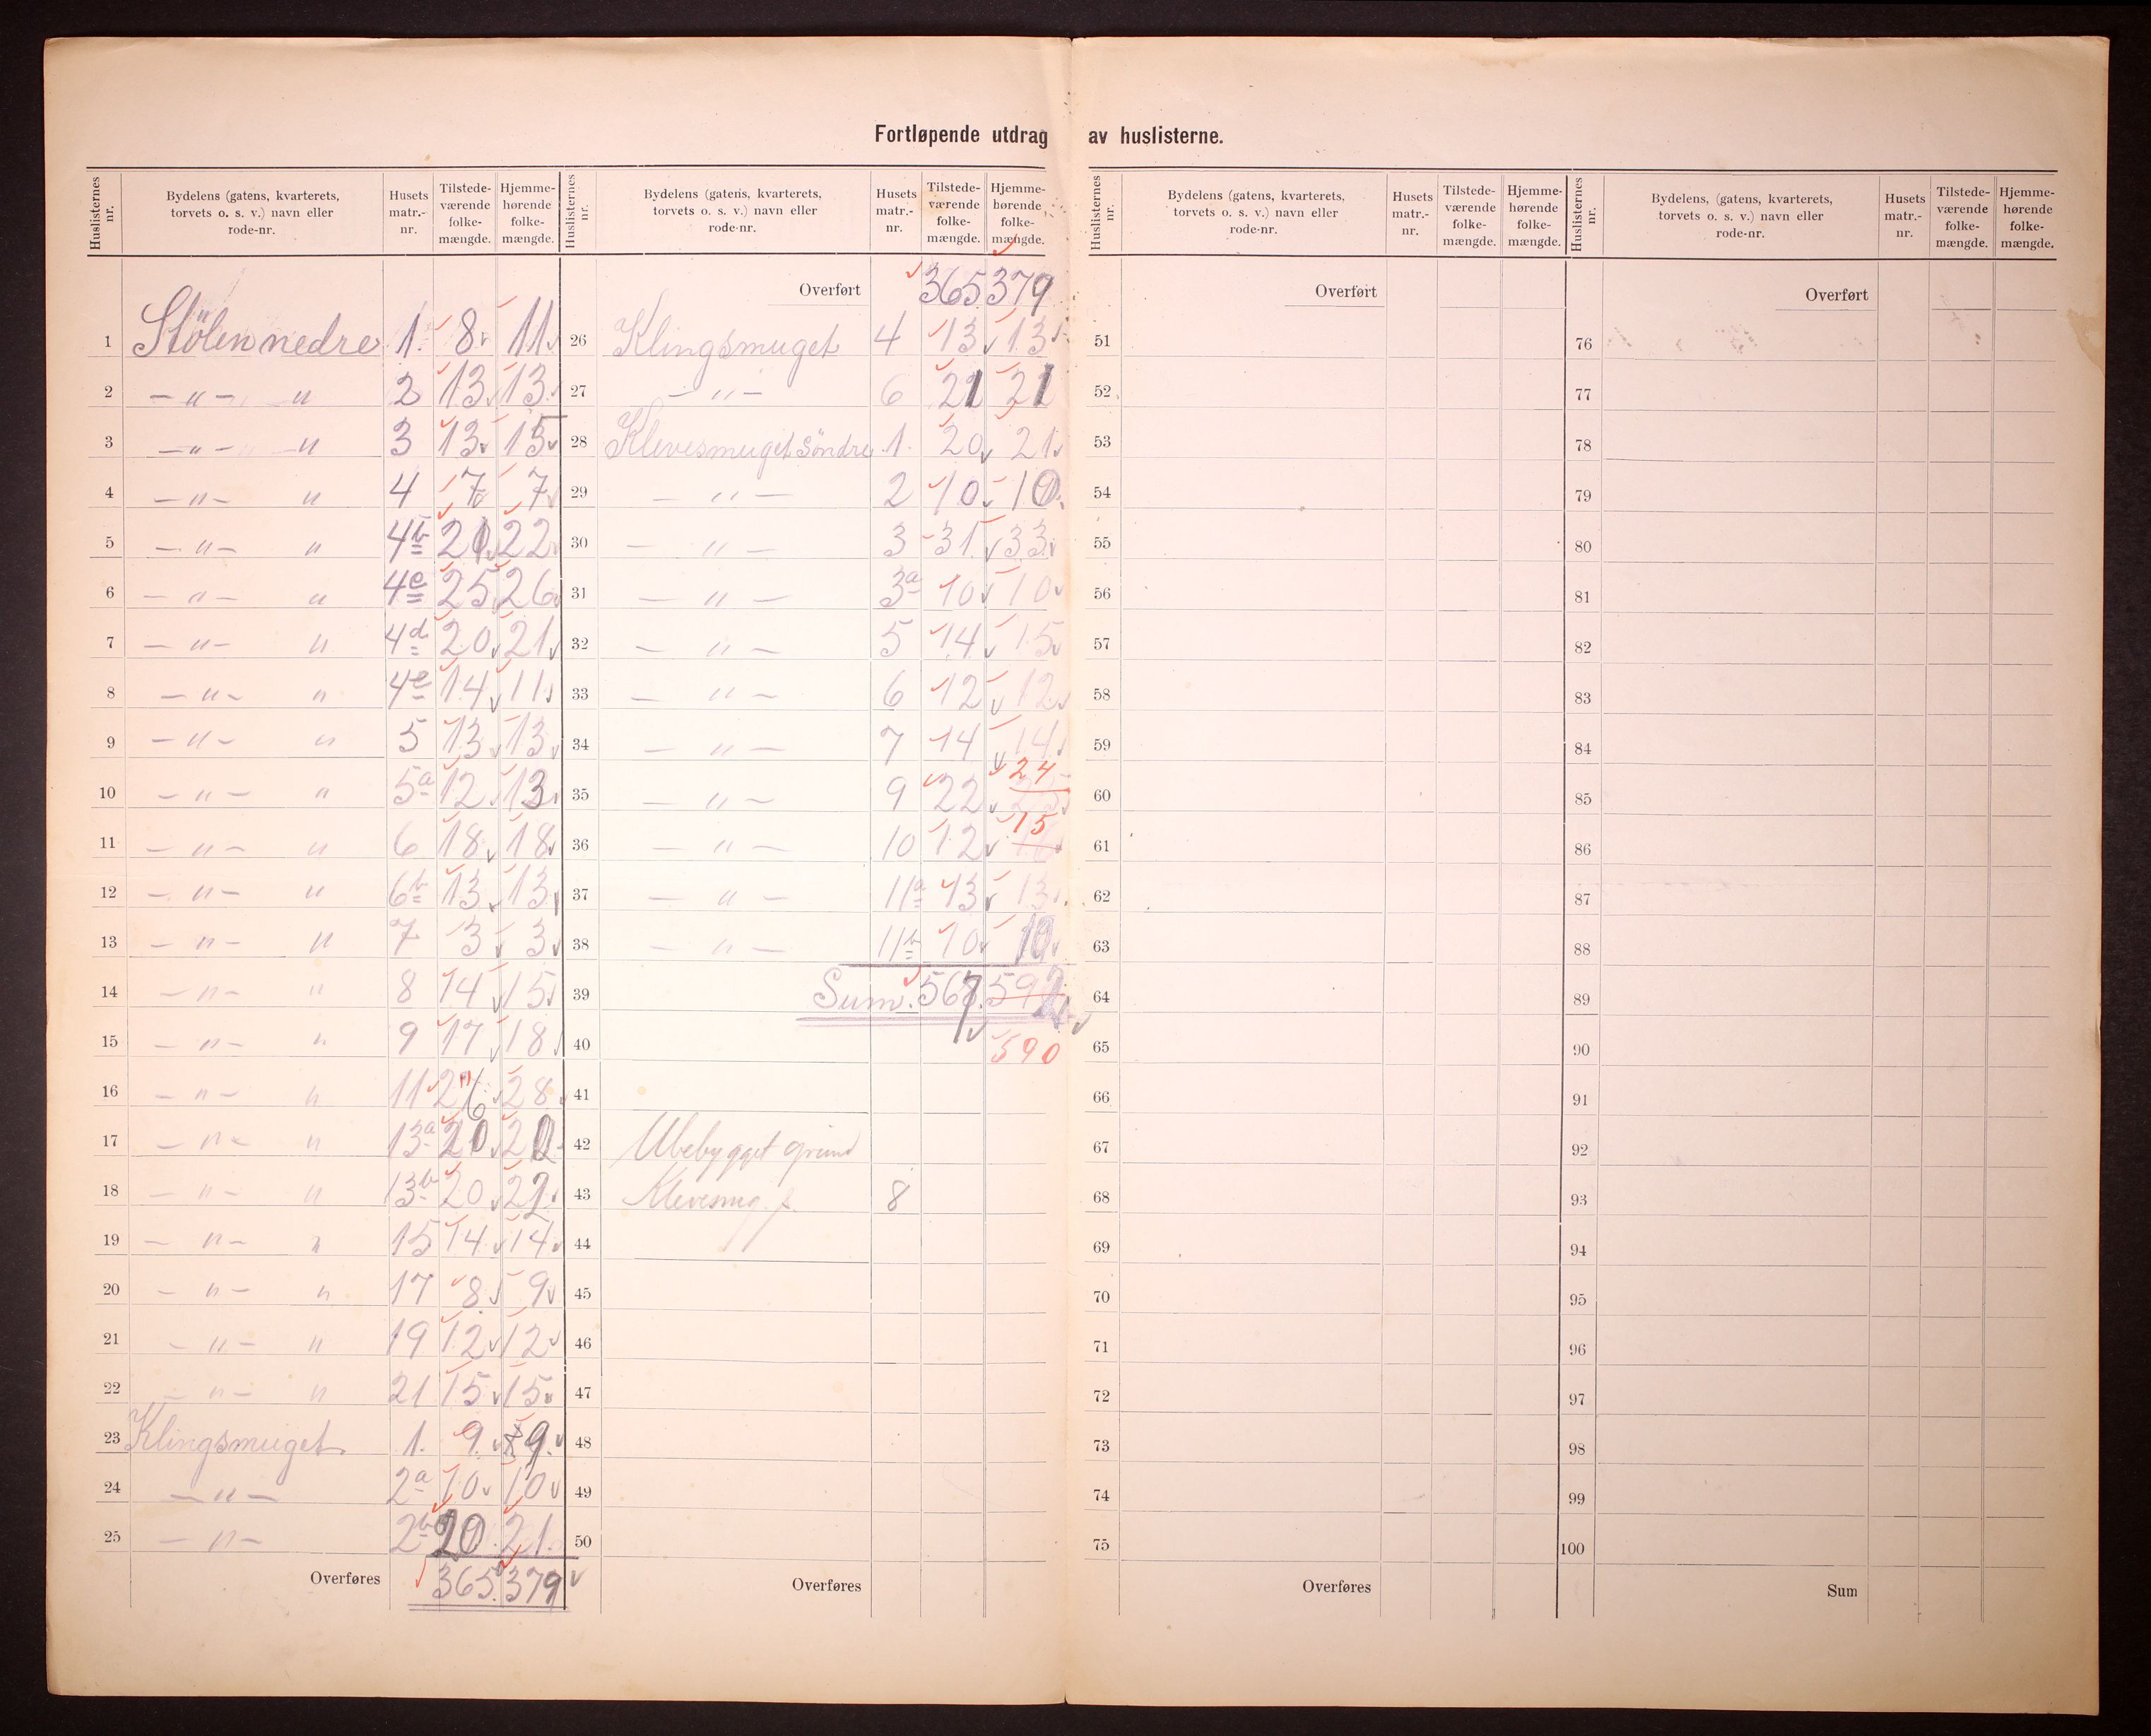 Fortløpende utdrag av huslisterne.
Huslisternes nr. Bydelens (gatens, kvarterets, torvets o. s. v.) navn eller rode-nr. Husets matr.-nr. Tilstede-værende folke-mængde. Hjemme-hørende folke-mængde.
1 Stölen nedre 1. 8 11
2 — " — " 2 13 13
3 — " — " 3 13 15
4 — " — " 4 7 7
5 — " — " 4b 20 22
6 — " — " 4c 25 26
7 — " — " 4d 20 21
8 — " — " 4e 14 11
9 — " — " 5 13 13
10 — " — " 5a 12 13
11 — " — " 6 18 18
12 — " — " 6b 13 13
13 — " — " 7 3 3
14 — " — " 8 14 15
15 — " — " 9 17 18
16 — " — " 11 26 28
17 — " — " 13a 20 20
18 — " — " 13b 20 22
19 — " — " 15 14 14
20 — " — " 17 8 9
21 — " — " 19 12 12
22 — " — " 21 15 15
23 Klingsmuget 1. 9 9
24 — " — 2a 10 10
25 — " — 2b 20 21
Overføres 365 379
Huslisternes nr. Bydelens (gatens, kvarterets, torvets o. s. v.) navn eller rode-nr. Husets matr.-nr. Tilstede-værende folke-mængde. Hjemme-hørende folke-mængde.
Overført 365 379
26 Klingsmuget 4 13 13
27 — " — 6 21 21
28 Klevesmuget Söndre 1. 20 21
29 — " — 2 10 10
30 — " — 3 31 33
31 — " — 3a 10 10
32 — " — 5 14 15
33 — " — 6 12 12
34 — " — 7 14 14
35 — " — 9 22 24
36 — " — 10 12 15
37 — " — 11a 13 13
38 — " — 11b 10 10
39 Sum. 567 592
40 590
41
42 Ubebygget grund
43 Klevesmug. s. 8
44
45
46
47
48
49
50
Overføres
Huslisternes nr. Bydelens (gatens, kvarterets, torvets o. s. v.) navn eller rode-nr. Husets matr.-nr. Tilstede-værende folke-mængde. Hjemme-hørende folke-mængde.
Overført
51
52
53
54
55
56
57
58
59
60
61
62
63
64
65
66
67
68
69
70
71
72
73
74
75
Overføres
Huslisternes nr. Bydelens, (gatens, kvarterets, torvets o. s. v.) navn eller rode-nr. Husets matr.-nr. Tilstede-værende folke-mængde. Hjemme-hørende folke-mængde.
Overført
76
77
78
79
80
81
82
83
84
85
86
87
88
89
90
91
92
93
94
95
96
97
98
99
100
Sum